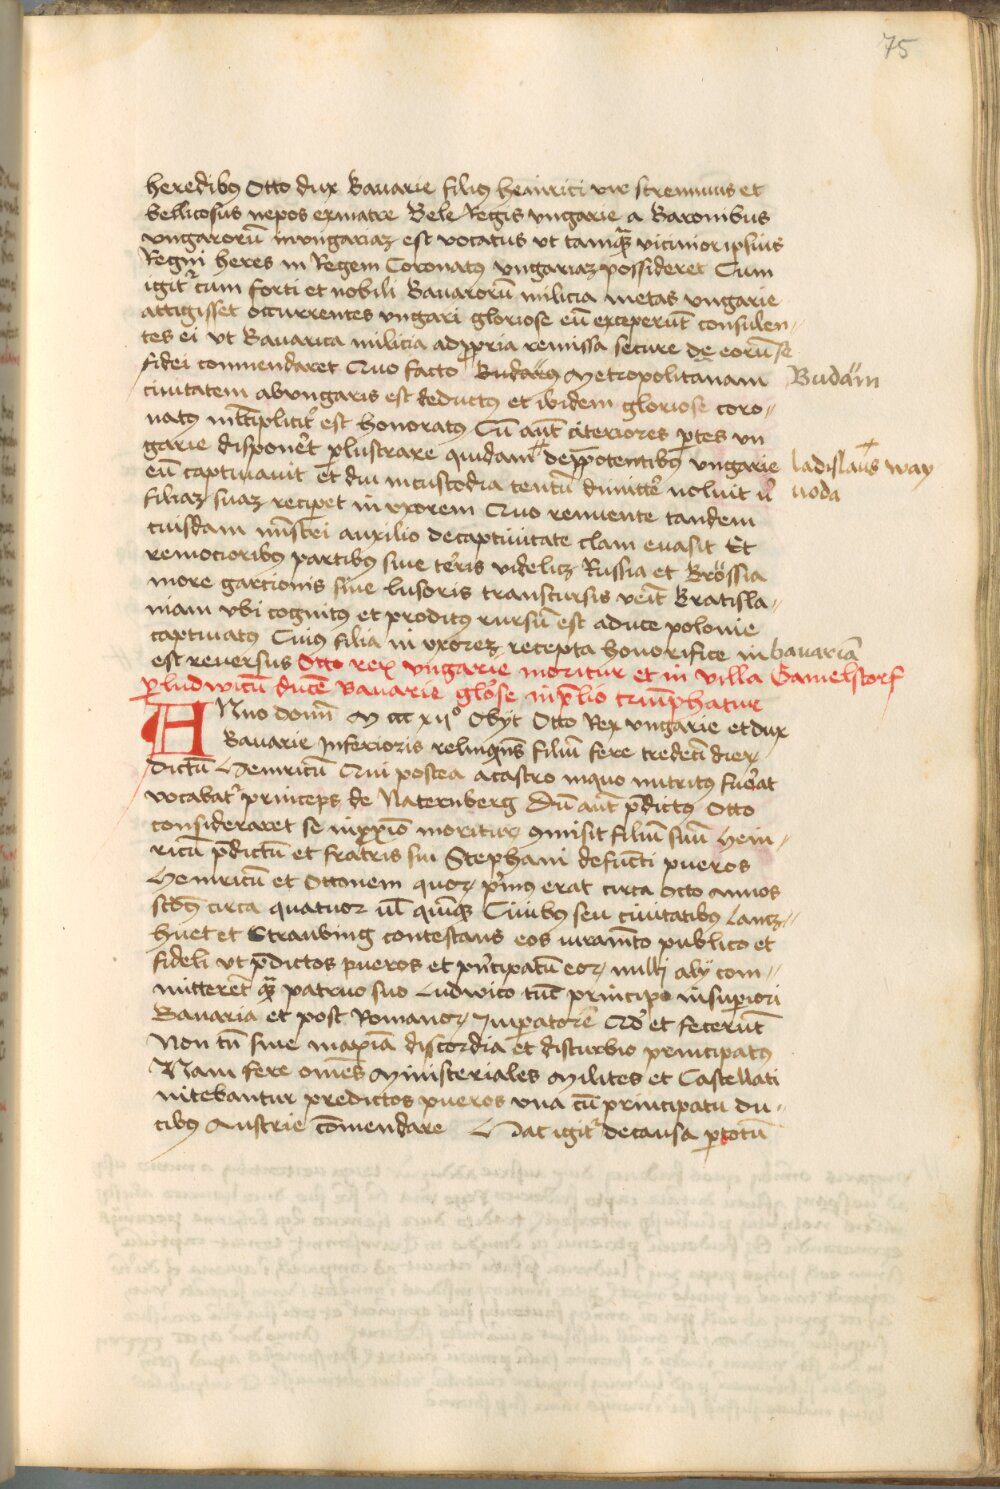 75
heredibꝰ Otto dux Bauarie filiꝰ heinrici vir strennuus et
bellicosus nepos exmatre Bele Regis vngarie a Baronibus
vngarorū invngariaꝫ est vocatus vt tamq̄ꝫ vicinior ipsius
Regni heres in Regem Coronatꝰ vngariaꝫ possideret Cum
igitᷣ cum forti et nobili Bauarorū milicia metas vngarie
attigisset occurrentes vngari gloriose eū exceperūt consulen〃
tes ei vt Bauarica milicia adꝓpria remissa secure de eorūse
fidei commendaret Quo facto Budarūs Metropolitanam Budam̈
ciuitatem abvngaris est deductꝰ et ibidem gloriose coro〃
natꝰ ml̄tiplicitᷣ est honoratꝰ Cū aūt citeriores ꝑtes vn
garie disponeᷣt ꝑlustrare quidam depp̄otentibꝰ vngarie ladislaūs way
eū captiuauit et diu incustodia tentū dimitteᷣ noluit nͥ uoda
filiaꝫ suaꝫ reciꝑet in vxorem Quo renuente tandem
cuisdam mīsteri auxilio decaptiuitate clam euasit Et
remotioribꝰ partibꝰ siue teᷣris videlicꝫ Russia et Brössia
more garcionis siue lusoris transcursis veīt Bratisla〃
uiam vbi cognitꝰ et proditꝰ rursū est aduce polonie
captiuatꝰ Cuiꝰ filia in vxoreꝫ recepta honorifice in bauariā
est reuersus Otto rex vngarie moritur et in villa Gamelstorf
ꝑ ludwicū ducē Bauarie gloᷣse inp̄lio triūphatur
ANno domī M ccc xiiº Obyt Otto Rex vngarie et dux
Bauarie Inferioris relinquēs filiū fere tredecī dieꝝ
dictū Heinricū Qui postea acastro inquo nutritꝰ fueᷣat
vocabatᷣ princeps de Naternberg Dū aūt p̄dictꝰ Otto
consideraret se inꝓxīo moriturꝫ ꝯmisit filiū suū hein〃
ricū p̄dictū et fratris sui Stephani defūcti pueros
Heinricū et Ottonem quoꝝ pͥmꝰ erat circa octo Annos
sc̄dꝰ circa quatuor uꝉ quīqꝫ Ciuibꝰ seu ciuitatibꝰ Lancꝫ〃
huet et Straubing contestans eos iuramēto publico et
fideli vt p̄dictos pueros et pͥncipatū eoꝝ nulli aly com〃
mitterēt q̄ꝫ patruo suo Ludwico tūc principe insuꝑiori
Bauaria et post Romanoꝝ Imperatore Qd̓ et fecerūt
Non tn̄ sine maxīa discordia et disturbio principatꝰ
Nam fere omēs Ministeriales Milites et Castellati
nitebantur predictos pueros vna cū principatu du〃
cibꝰ Austrie cōmendare Hac igitᷣ decausa ꝑtotū